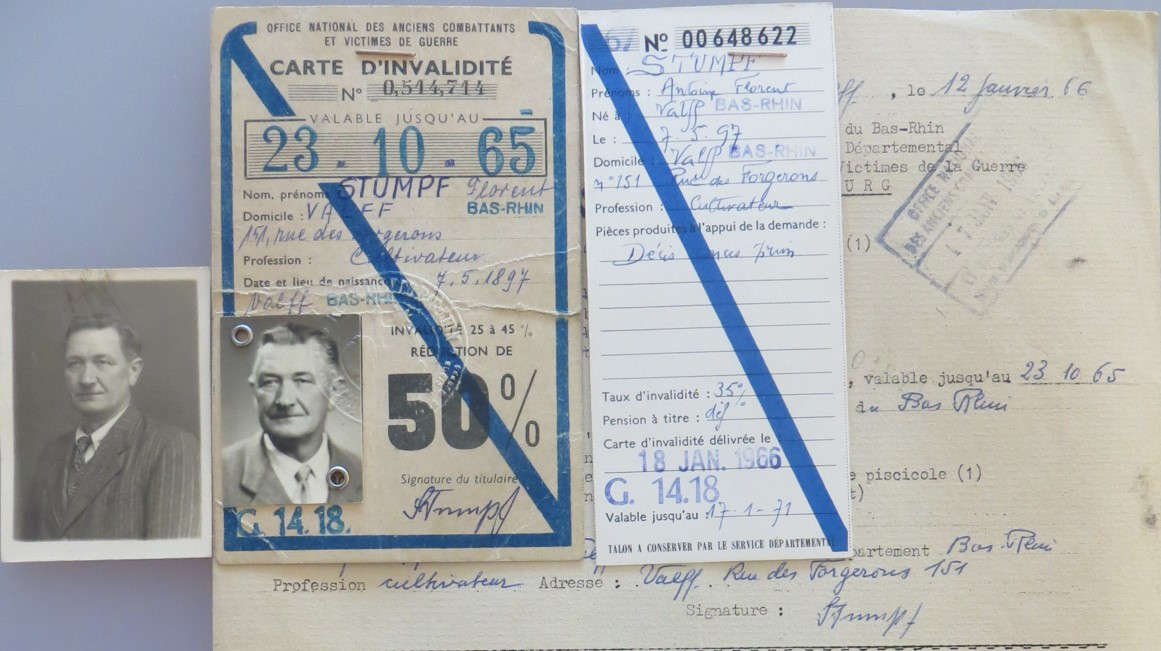 OFFICE NATIONAL DES ANCIENS COMBATTANTS
ET VICTIMES DE GUERRE
CARTE D'INVALIDITÉ
Nº 0,514,714
VALABLE JUSQU'AU
23 . 10 . 65
Nom, prénoms STUMPF Florent
BAS-RHIN
Domicile : VALFF
151, rue des forgerons
Profession : Cultivateur
Date et lieu de naissance 7.5.1897
Valff BAS-RHIN
INVALIDITÉ 25 à 45 %
RÉDUCTION DE
50%
Signature du titulaire
Stumpf
G. 14.18.
67 Nº 00648622
Nom : STUMPF
Prénoms : Antoine Florent
Né à Valff BAS-RHIN
Le : 7.5.97
Domicile : Valff BAS-RHIN
n°151 Rue des Forgerons
Profession : Cultivateur
Pièces produites à l'appui de la demande :
Taux d'invalidité : 35%
Pension à titre : déf
Carte d'invalidité délivrée le
18 JAN. 1966
G. 14.18
Valable jusqu'au 17-1-71
TALON A CONSERVER PAR LE SERVICE DÉPARTEMENTAL
, le 12 Janvier 66
du Bas-Rhin
Départemental
Victimes de la Guerre
URG
(1)
, valable jusqu'au 23 10 65
du Bas Rhin
piscicole (1)
Bas-Rhin
Profession cultivateur Adresse : Valff. Rue des Forgerons 151
Signature : Stumpf